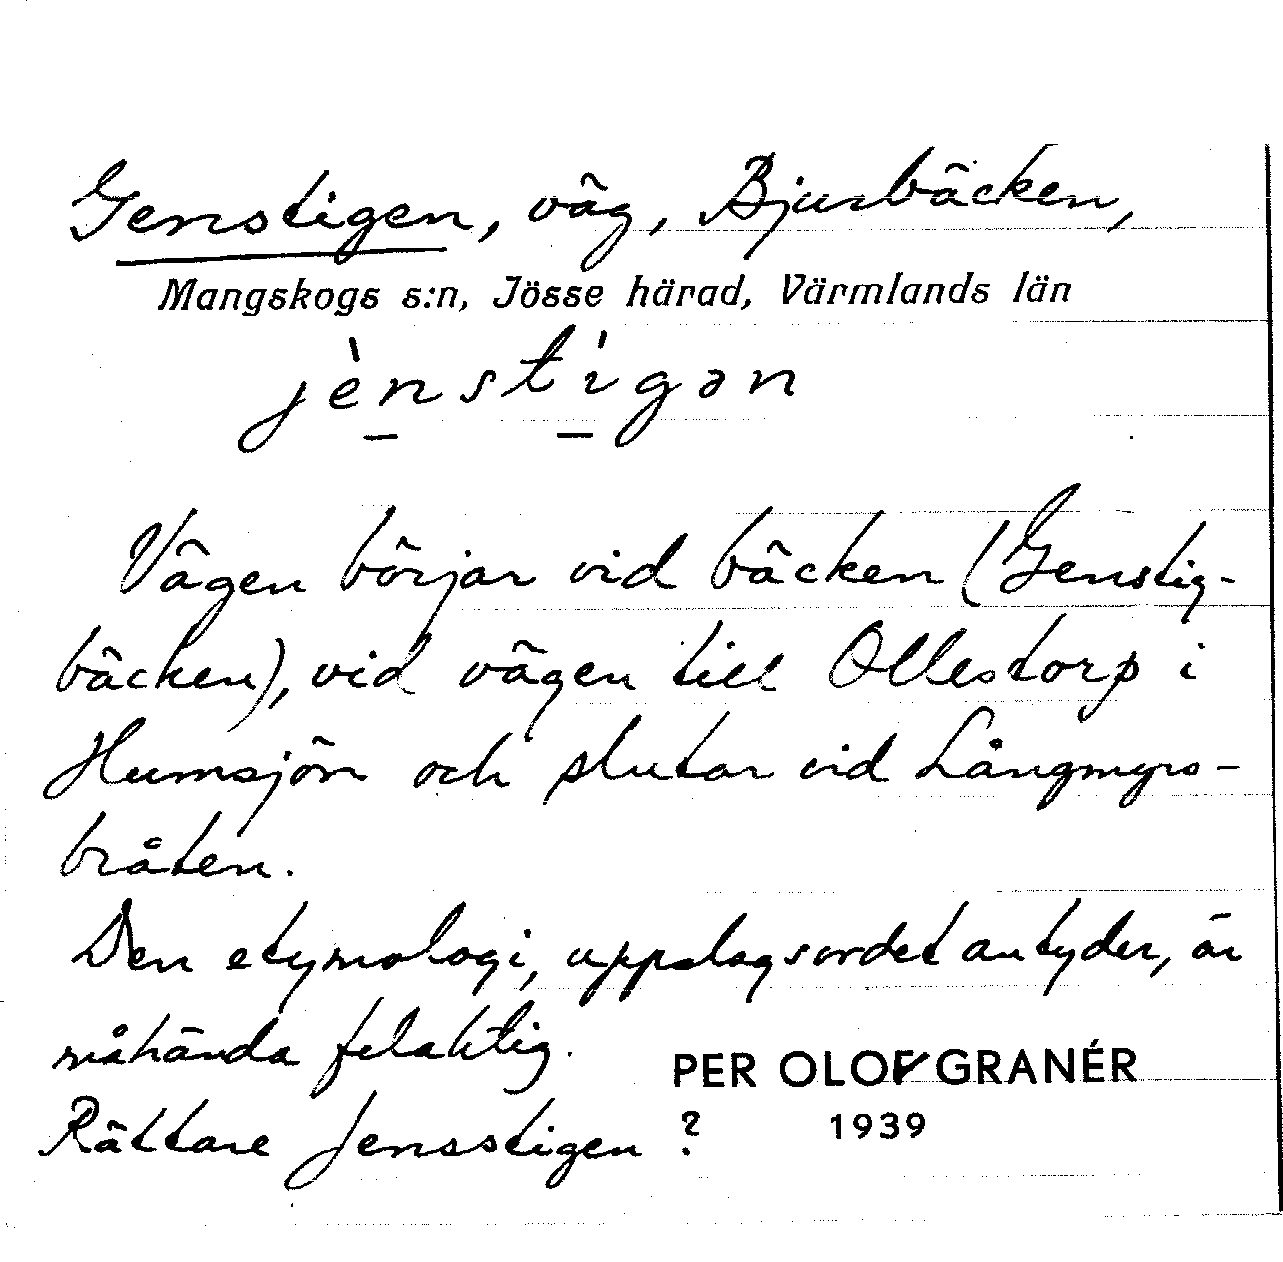 Genstigen, väg, Bjurbäcken,
Mangskogs s:n, Jösse härad, Värmlands län
jènstigən
Vägen börjar vid bäcken (Genstig-
bäcken), vid vägen till Ollestorp i
Humsjön och slutar vid Långmyrs-
bråten.
Den etymologi, uppslagsordet antyder, är
måhända felaktig.
PER OLOF GRANÉR
Rättare Jensstigen ?
1939